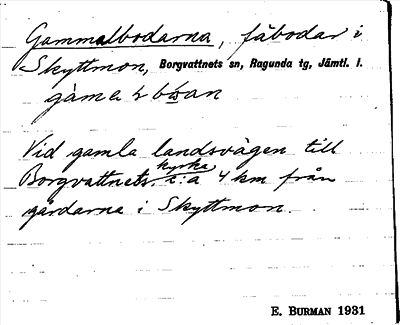 Gammalbodarna, fäbodar i
Skyttmon, Borgvattnets sn, Ragunda tg, Jämtl. l.
Vid gamla landsvägen till
Borgvattnets kyrka, c:a 4 km från
gårdarna i Skyttmon.
E. BURMAN 1931